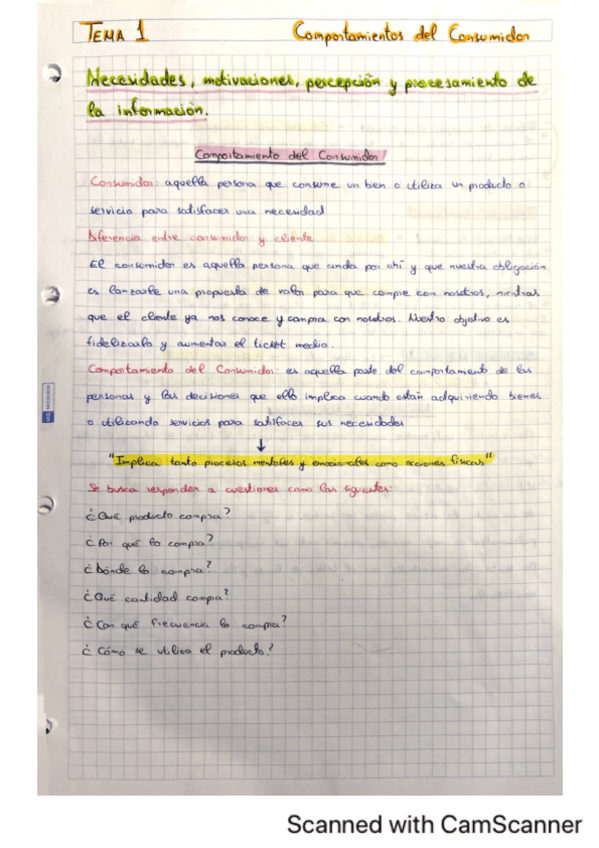 TEMA 1 Comportamientos del Consumidor
Necesidades, motivaciones, percepción y procesamiento de
la información.
Comportamiento del Consumidor
Consumidor: aquella persona que consume un bien o utiliza un producto o
servicio para satisfacer una necesidad
Diferencia entre consumidor y cliente
El consumidor es aquella persona que anda por ahí y que nuestra obligación
es lanzarle una propuesta de valor para que compre con nosotros, mientras
que el cliente ya nos conoce y compra con nosotros. Nuestro objetivo es
fidelizarlo y aumentar el ticket medio.
Comportamiento del Consumidor: es aquella parte del comportamiento de las
personas y las decisiones que ello implica cuando están adquiriendo bienes
o utilizando servicios para satisfacer sus necesidades
↓
"Implica tanto procesos mentales y emocionales como acciones físicas"
Se busca responder a cuestiones como las siguientes:
¿Qué producto compra?
¿Por qué lo compra?
¿Dónde lo compra?
¿Qué cantidad compra?
¿Con qué frecuencia lo compra?
¿Cómo se utiliza el producto?
Scanned with CamScanner